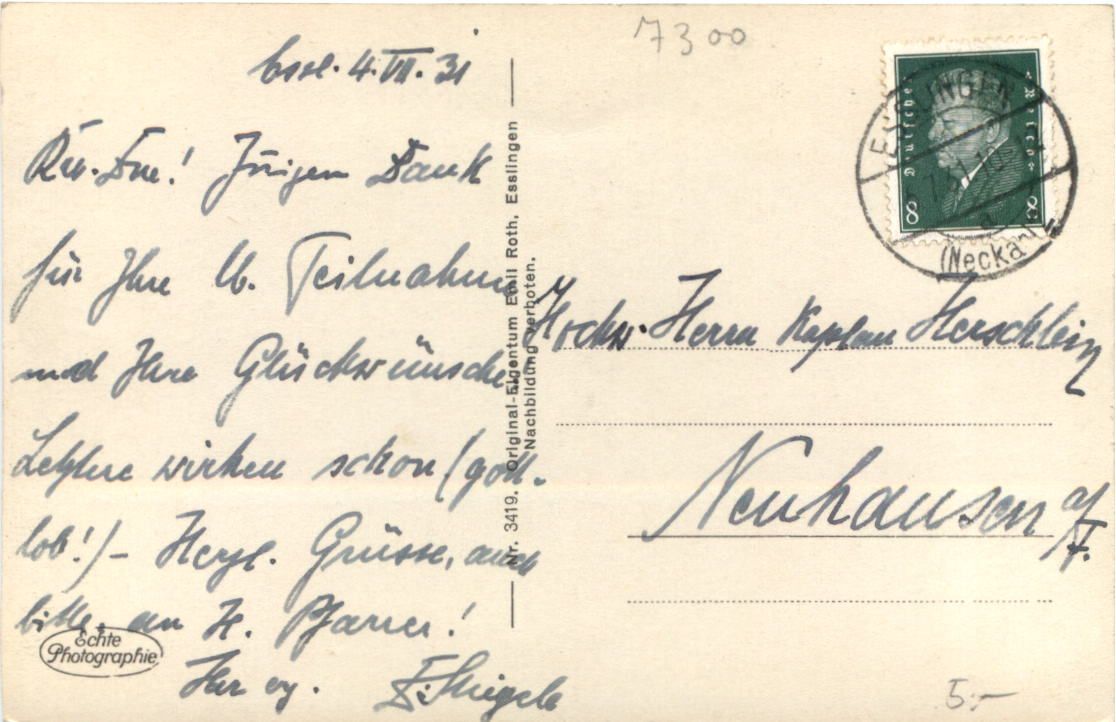 7300
Essl. 4. VII. 31
Dank
für Ihre lb. Teilnahme
und Ihre Glückwünsche.
Letztere wirken schon (gott-
lob!) - Herzl. Grüsse, auch
bitte an H. Pfarrer!
Ihr
Nr. 3419. Original-Eigentum Emil Roth, Esslingen
Nachbildung verboten.
Echte
Photographie
Deutsches Reich
8 8
ESSLINGEN
(Neckar)
Hochw. Herrn Kaplan Herschlein
Neuhausen a/F.
5.-